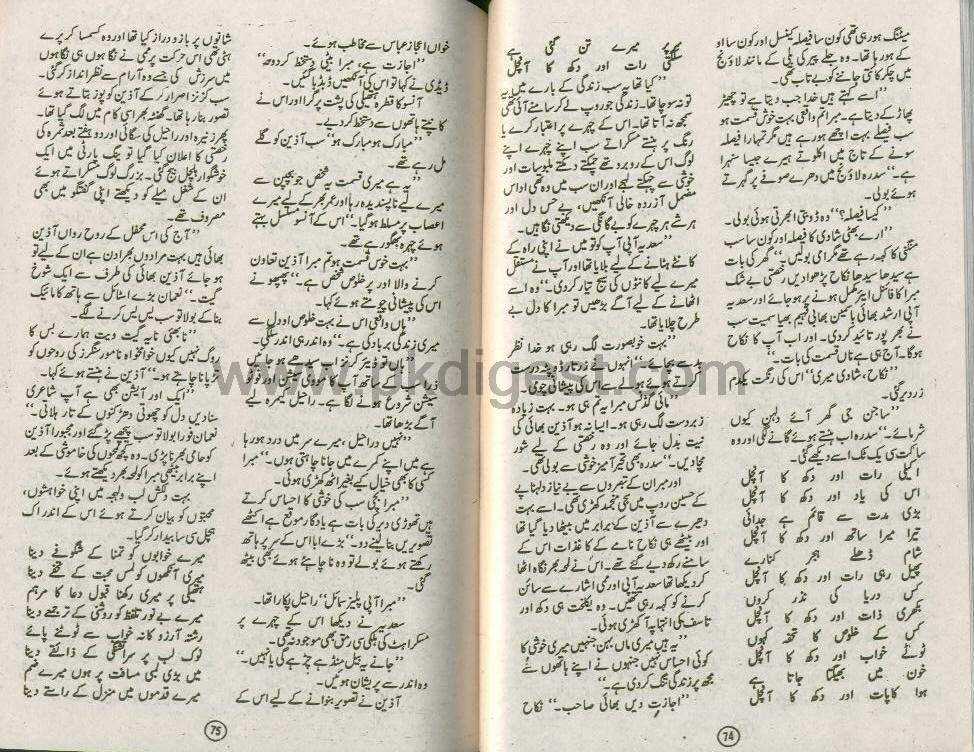 میٹنگ ہو رہی تھی کون سا فیصلہ کینسل اور کون سا او
کے ہو رہا تھا۔ وہ جلے پیر کی بلی کے مانند لاؤنج
میں چکر کاٹتی جاننے کو بے تاب تھی۔
”اسے کہتے ہیں خدا جب دیتا ہے تو چھپڑ
پھاڑ کے دیتا ہے۔ میرا تم واقعی بہت خوش قسمت ہو
سب فیصلے بہت اچھے ہو رہے ہیں مگر تمہارا فیصلہ
سونے کے تاج میں اکلوتے ہیرے جیسا سنہرا
ہے۔“ سدرہ لاؤنج میں دھرے صوفے پر گرتے
ہوئے بولی۔
”کیسا فیصلہ؟“ وہ ڈوبتی ابھرتی ہوئی بولی۔
”ارے بھئی شادی کا فیصلہ اور کون سا سب
منگنی کا کہہ رہے تھے مگر امی بولیں۔“ گھر کی بات
ہے سیدھا سیدھا نکاح پڑھوا دیں رخصتی بے شک
مبرا کا فائنل ایئر مکمل ہونے پر ہو جائے اور سعدیہ
آپی ارشد بھائی یاسمین بھابی فہیم بھیا سمیت سب
نے بھرپور تائید کر دی۔ اور اب آپ کا نکاح
ہوگا۔ آج ہی ہے ناں قسمت کی بات۔“
”نکاح، شادی میری“ اس کی رنگت یکدم
زرد پڑ گئی۔
”ساجن جی گھر آئے دلہن کیوں
شرمائے۔“ سدرہ اب ہنستے ہوئے گانے لگی اور وہ
ساکت سی یک ٹک اسے دیکھے گئی۔
اکیلی رات اور دکھ کا آنچل
اس کی یاد اور دکھ کا آنچل
بڑی مدت سے قائم ہے جدائی
تیرا میرا ساتھ اور دکھ کا آنچل
شام ڈھلے ہجر کنارے
پھیل رہی رات اور دکھ کا آنچل
کس دریا کی نذر کروں
بکھری ذات اور دکھ کا آنچل
کس کے خلوص کا تحفہ کہوں
ٹوٹے خواب اور دکھ کا آنچل
خون میں بھیگتا جاتا ہے
ہوا کا ہات اور دکھ کا آنچل
74
پھر میرے تن گئی ہے
سلگتی رات اور دکھ کا آنچل
”کیا تھا یہ سب زندگی کے بارے میں یہ
تو نہ سوچا تھا۔ زندگی جو روپ لے کر سامنے آئی تھی
سمجھ نہ آتا تھا۔ اس کے چہرے پر اعتبار کرے یا
رنگ پر ہنستے مسکراتے سب اپنے چہرے اپنے
لوگ اس کے روبرو تھے چمکتے دمکتے ملبوسات اور
خوشی سے چہکتے لہجے اور ان سب میں وہ تھی اداس
مضمحل آزردہ خالی آنکھیں، بے حس دل اور
ہر شے ہر چہرے کو بے گانگی سے دیکھتی نگاہیں۔
”سعدیہ آپی آپ کو تو میں نے اپنی راہ کے
کانٹے ہٹانے کے لیے بلایا تھا اور آپ نے مستقل
میرے لیے کانٹوں کی سیج تیار کر دی۔“ وہ اسے
اٹھانے کے لیے آگے بڑھیں تو مبرا کا دل بے
طرح چلایا تھا۔
”بہت خوبصورت لگ رہی ہو خدا نظر
بد سے بچائے۔“ انہوں نے اس کا زر تار دوپٹہ درست
کرتے ہوئے ہولے سے اس کی پیشانی چومی۔
”مائی گڈنس مبرا یہ تم ہی ہو۔ بہت زیادہ
زبردست لگ رہی ہو۔ ایسا نہ ہو آذین بھائی کی
نیت بدل جائے اور وہ رخصتی کے لیے شور
مچا دیں۔“ سدرہ بھی تحیر آمیز خوشی سے بولی تھی۔
اور مبرا ان کے تبصروں سے بے نیاز دلہناپے
کے حسین روپ میں سجی منجمد کھڑی تھی۔ اسے بہت
دھیرے سے آذین کے برابر میں بیٹھا دیا گیا تھا
اور بیٹھے ہی نکاح نامے کے کاغذات اس کے
سامنے رکھ دیے گئے تھے۔ اس نے لمحہ بھر نگاہ اٹھا
کر دیکھا تھا سعدیہ آپی اور ممی اشارے سے سائن
کرنے کو کہہ رہی تھیں۔ وہ یکلخت ہی دکھ اور
تاسف کی انتہا پہ آ کھڑی ہوئی۔
”یہ ہیں میری ماں بہن جنہیں میری خوشی کا
کوئی احساس نہیں جنہوں نے اپنے ہاتھوں سے
مجھ پر زندگی تنگ کر دی ہے۔“
”اجازت دیں بھائی صاحب۔“ نکاح
خواں اعجاز عباس سے مخاطب ہوئے۔
”اجازت ہے، مبرا بیٹی دستخط کر دو۔“
ڈیڈی نے کہا تو اس کی آنکھیں ڈبڈبا گئیں۔
آنسو کا قطرہ ہتھیلی کی پشت پر گرا اور اس نے
کانپتے ہاتھوں سے دستخط کر دیے۔
”مبارک ہو مبارک ہو“ سب آذین کو گلے
مل رہے تھے۔
”یہ ہے میری قسمت یہ شخص جو بچپن سے
میرے لیے ناپسندیدہ رہا اور عمر بھر کے لیے میرے
اعصاب پر مسلط ہو گیا۔“ اس کے آنسو مسلسل بہتے
ہوئے چہرہ بھگو رہے تھے۔
”بہت خوش قسمت ہو تم مبرا آذین تعاون
کرنے والا اور پر خلوص شخص ہے۔“ پھپھو نے
اس کی پیشانی چومتے ہوئے کہا۔
”ہاں واقعی اس نے بہت خلوص اور دل سے
میری زندگی برباد کی ہے۔“ وہ اندر ہی اندر سلگی۔
”ہاں تو ڈیئر کزنز اب سیدھے ہو جائیں
ذرا سب کے ساتھ آپ کا مووی سیشن اور فوٹو
سیشن شروع ہونے لگا ہے۔ راحیل کیمرہ لیے
آگے بڑھا تھا۔
”نہیں راحیل، میرے سر میں درد ہو رہا
ہے میں اپنے کمرے میں جانا چاہتی ہوں۔“ مبرا
کسی کا بھی خیال کیے بغیر اٹھ کھڑی ہوئی۔
”مبرا بچی سب کی خوشی کا احساس کرتے
ہیں تھوڑی دیر کی بات ہے یادگار موقع ہے اکٹھے
تصویریں بنا لینے دو۔“ بڑے ابا اس کے سر پر ہاتھ
رکھتے ہوئے بولے تو وہ نا چاہتے ہوئے بھی بیٹھ
گئی۔
”مبرا آپی پلیز سمائل“ راحیل پکارا تھا۔
سعدیہ نے دیکھا اس کے چہرے پر
مسکراہٹ کی ہلکی سی رمق بھی موجود نہ تھی۔
”جانے یہ بیل منڈھے چڑھے گی یا نہیں۔“
وہ اندر سے پریشان ہوئیں۔
آذین نے تصویر بنوانے کے لیے اس کے
شانوں پر بازو دراز کیا تھا اور وہ کسمسا کر پرے
ہٹی تھی اس حرکت پر ممی نے نگاہوں ہی نگاہوں
میں سرزنش کی جسے وہ آرام سے نظر انداز کر گئی۔
سب کزنز اصرار کر کے آذین کو پوز بتاتے ہوئے
تصویر بنا رہا تھا۔ گھنٹہ بھر اسی کام میں لگ گیا تھا۔
پھر نیرہ اور راحیل کی سگائی اور دو ہفتے بعد ثمرہ کی
رخصتی کا اعلان کیا گیا تو ینگ پارٹی میں ایک
خوشگوار ہلچل مچ گئی۔ بزرگ لوگ مسکراتے ہوئے
ان کے شغل میلے کو دیکھتے اپنی گفتگو میں بھی
مصروف تھے۔
”آج کی اس محفل کے روح رواں آذین
بھائی ہیں بہت مرادوں بھرا دن ہے ان کے لیے تو
ہو جائے آذین بھائی کی طرف سے ایک شوخ
گیت۔“ نعمان بڑے اسٹائل سے ہاتھ کا مائیک
بنا کے بولا تو سب یس یس کرنے لگے۔
”نا بھئی نا یہ گیت ویت ہمارے بس کا
روگ نہیں کیوں خوامخواہ نامور سنگرز کی روحوں کو
تڑپانا چاہتے ہو۔“ آذین نے ہنستے ہوئے کہا۔
”ایک اور آپشن بھی ہے آپ شاعری
سنا دیں دل کو چھوتی دھڑکنوں کے تار ہلاتی۔“
نعمان فوراً بولا تو سب پیچھے پڑ گئے اور مجبوراً آذین
کو حامی بھرنا پڑی۔ وہ کچھ لمحوں کی خاموشی کے بعد
اپنے برابر بیٹھی مبرا کو لمحہ بھر دیکھتے ہوئے۔
بہت دلکش لب و لہجہ میں اپنی خواہشوں،
محبتوں کو بیان کرتے ہوئے اس کے اندر اک
ہلچل سی سا بیدار کر گیا۔
میرے خوابوں کو تمنا کے شگوفے دینا
میری آنکھوں کو لمس محبت کے تحفے دینا
ہتھیلی پر میری رکھنا قبول دعا کا مرہم
میرے بے نور تلفظ کو روشنی کے ترجمے دینا
رشتہ آرزو کا نہ خواب سے ٹوٹنے پائے
نوک لب پر سرا تشنگی کے ذائقے دینا
میں بڑی لمبی مسافت پر ہوں میرے ہمدم
میرے قدموں میں منزل کے راستے دینا
75
www.pkdigest.com